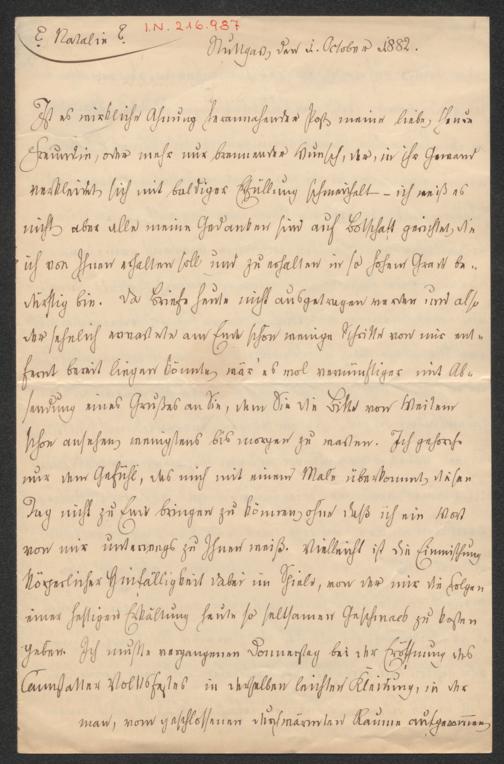 ? Natalie ?
I.N. 216.937
Stuttgart, den 1. October 1882.
Ist es wirkliche Ahnung herannahender Post, meine liebe, theure
Freundin, oder mehr nur brennender Wunsch, der, in ihr Gewand
verkleidet, sich mit baldiger Erfüllung schmeichelt – ich weiß es
nicht, aber alle meine Gedanken sind auf Botschaft gerichtet, die
ich von Ihnen erhalten soll und zu erhalten in so hohem Grade be-
dürftig bin. Da Briefe heute nicht ausgetragen werden und also
der sehnlich erwartete am Ende schon wenige Schritte von mir ent-
fernt bereit liegen könnte, wär' es wol vernünftiger mit Ab-
sendung eines Grußes an Sie, dem Sie die Bitte von Weitem
schon ansehen, wenigstens bis morgen zu warten. Ich gehorche
nur dem Gefühl, das mich mit einem Male überkommt, diesen
Tag nicht zu Ende bringen zu können, ohne daß ich ein Wort
von mir unterwegs zu Ihnen weiß. Vielleicht ist die Einmischung
körperlicher Hinfälligkeit dabei im Spiele, von der mir die Folgen
einer heftigen Erkältung heute so seltsamen Geschmack zu kosten
geben. Ich mußte vergangenen Donnerstag bei der Eröffnung des
Cannstatter Volksfestes in derselben leichten Kleidung, in der
man, vom geschlossenen durchwärmten Raume aufgenommen,